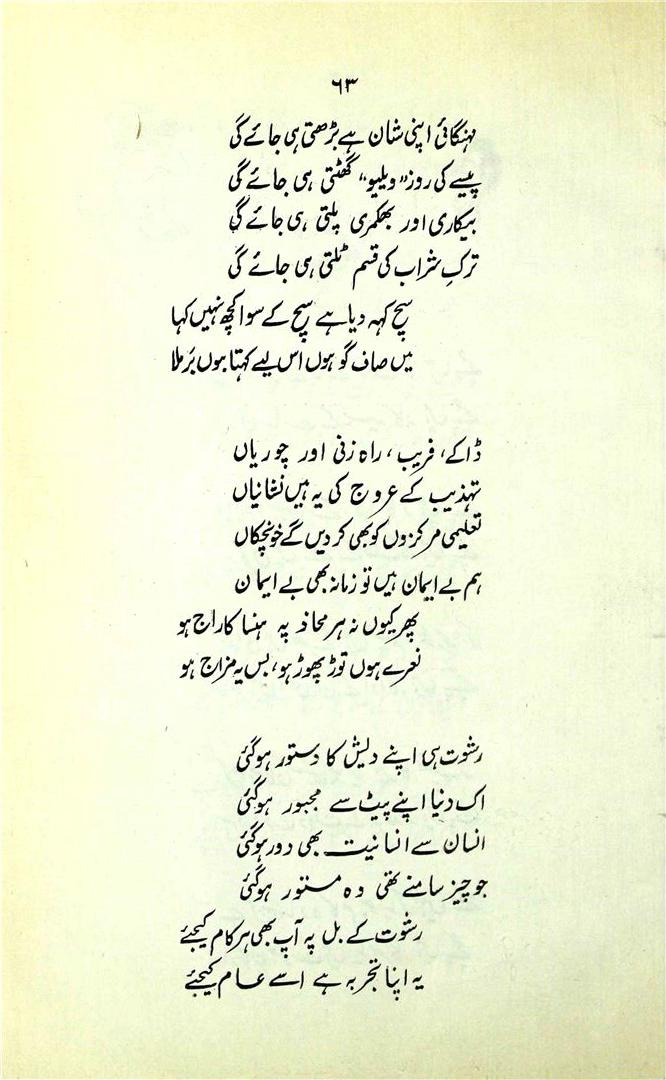 ۶۳
مہنگائی اپنی شان ہے بڑھتی ہی جائے گی
پیسے کی روز "ویلیو" گھٹتی ہی جائے گی
بیکاری اور بھکمری پلتی ہی جائے گی
ترکِ شراب کی قسم ٹلتی ہی جائے گی
سچ کہہ دیا ہے سچ کے سوا کچھ نہیں کہا
میں صاف گو ہوں اس لیے کہتا ہوں برَملا
ڈاکے، فریب، راہ زنی اور چوریاں
تہذیب کے عروج کی یہ ہیں نشانیاں
تعلیمی مرکزوں کو بھی کر دیں گے خونچکاں
ہم بے ایمان ہیں تو زمانہ بھی بے ایمان
پھر کیوں نہ ہر محاذ پہ ہنسا کا راج ہو
نعرے ہوں توڑ پھوڑ ہو، بس یہ مزاج ہو
رشوت ہی اپنے دیش کا دستور ہو گئی
اک دنیا اپنے پیٹ سے مجبور ہو گئی
انسان سے انسانیت بھی دور ہو گئی
جو چیز سامنے تھی وہ مستور ہو گئی
رشوت کے بل پہ آپ بھی ہر کام کیجئے
یہ اپنا تجربہ ہے اسے عام کیجئے